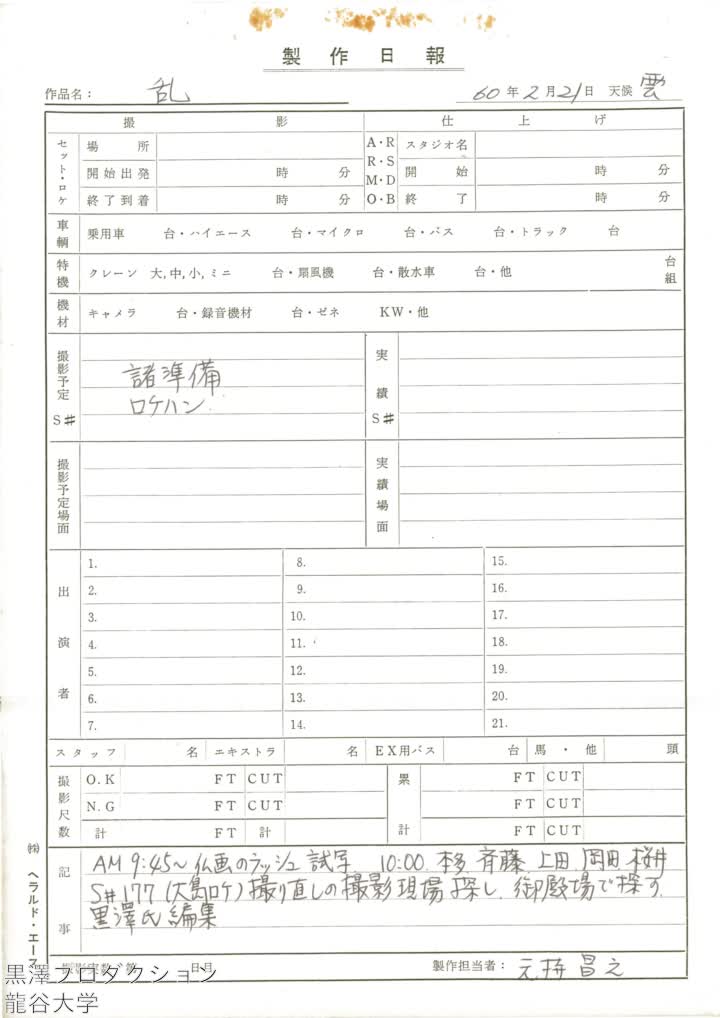 製作日報
作品名： 乱 60年2月21日 天候 雲
撮影 仕上げ
セット・ロケ 場所 A・R スタジオ名
R・S
開始出発 時 分 M・D 開始 時 分
終了到着 時 分 O・B 終了 時 分
車輌 乗用車 台・ハイエース 台・マイクロ 台・バス 台・トラック 台
特機 クレーン 大,中,小,ミニ 台・扇風機 台・散水車 台・他 台組
機材 キャメラ 台・録音機材 台・ゼネ KW・他
撮影予定 S# 実績 S#
諸準備
ロケハン.
撮影予定場面 実績場面
出演者 1. 8. 15.
2. 9. 16.
3. 10. 17.
4. 11. 18.
5. 12. 19.
6. 13. 20.
7. 14. 21.
スタッフ 名 エキストラ 名 EX用バス 台 馬・他 頭
撮影尺数 O.K FT CUT 累計 FT CUT
N.G FT CUT FT CUT
計 FT 計 FT CUT
記事 AM 9:45~ 仏画のラッシュ試写 10:00. 本多. 斉藤. 上田 岡田 桜井
S#177 (大島ロケ) 撮り直しの撮影現場探し. 御殿場で探す.
黒澤氏編集
撮影実数 第 日目 製作担当者： 元持昌之
㈱ ヘラルド・エース
黒澤プロダクション
龍谷大学